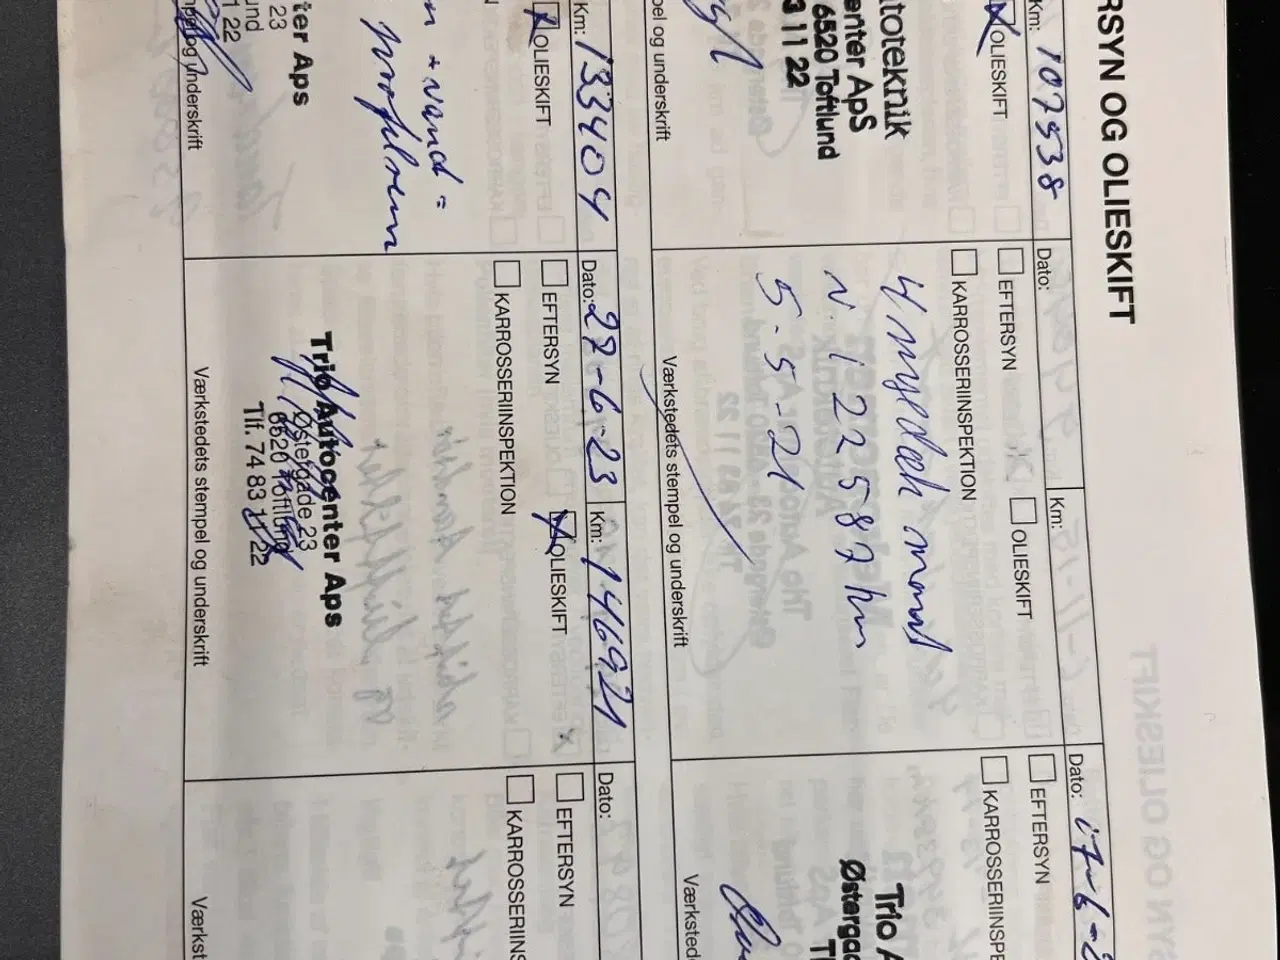 RSYN OG OLIESKIFT
Km: 107538
OLIESKIFT
toteknik
enter ApS
6520 Toftlund
3 11 22
pel og underskrift
Dato:
Km:
EFTERSYN
OLIESKIFT
KARROSSERIINSPEKTION
4 nye dæk mont
v. 122587 km
5-5-21
Værkstedets stempel og underskrift
Dato: 17-6-2
EFTERSYN
KARROSSERIINSPE
Trio A
Østerga
Tl
Værksted
Km: 133404
OLIESKIFT
N
n + vand =
ter Aps
23
und
1 22
og underskrift
Dato: 27-6-23
Km: 146921
EFTERSYN
OLIESKIFT
KARROSSERIINSPEKTION
Trio Autocenter Aps
Østergade 23
6520 Toftlund
Tlf. 74 83 11 22
Værkstedets stempel og underskrift
Dato:
EFTERSYN
KARROSSERIINS
Værkst